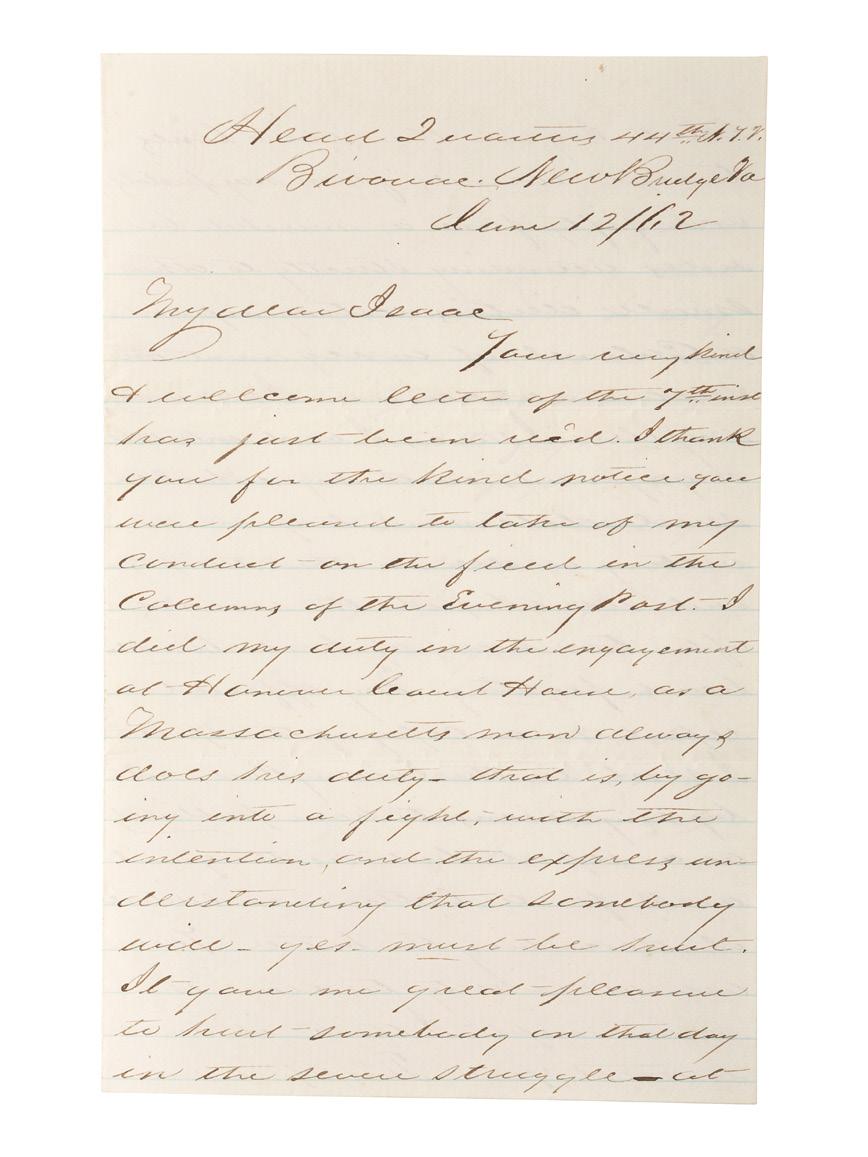 Head Quarters 44th N.Y.V.
Bivouac. New Bridge Va
June 12/62
My dear Isaac
Your very kind
& wellcome letter of the 7th inst
has just been rec'd. I thank
you for the kind notice you
were pleased to take of my
conduct on the field in the
Columns of the Evening Post. I
did my duty in the engagement
at Hanover Court House, as a
Massachusetts man always
does his duty - that is, by go-
ing into a fight, with the
intention, and the express un-
derstanding that somebody
will - yes - must be hurt.
It gave me great pleasure
to hurt somebody on that day
in the severe struggle - at